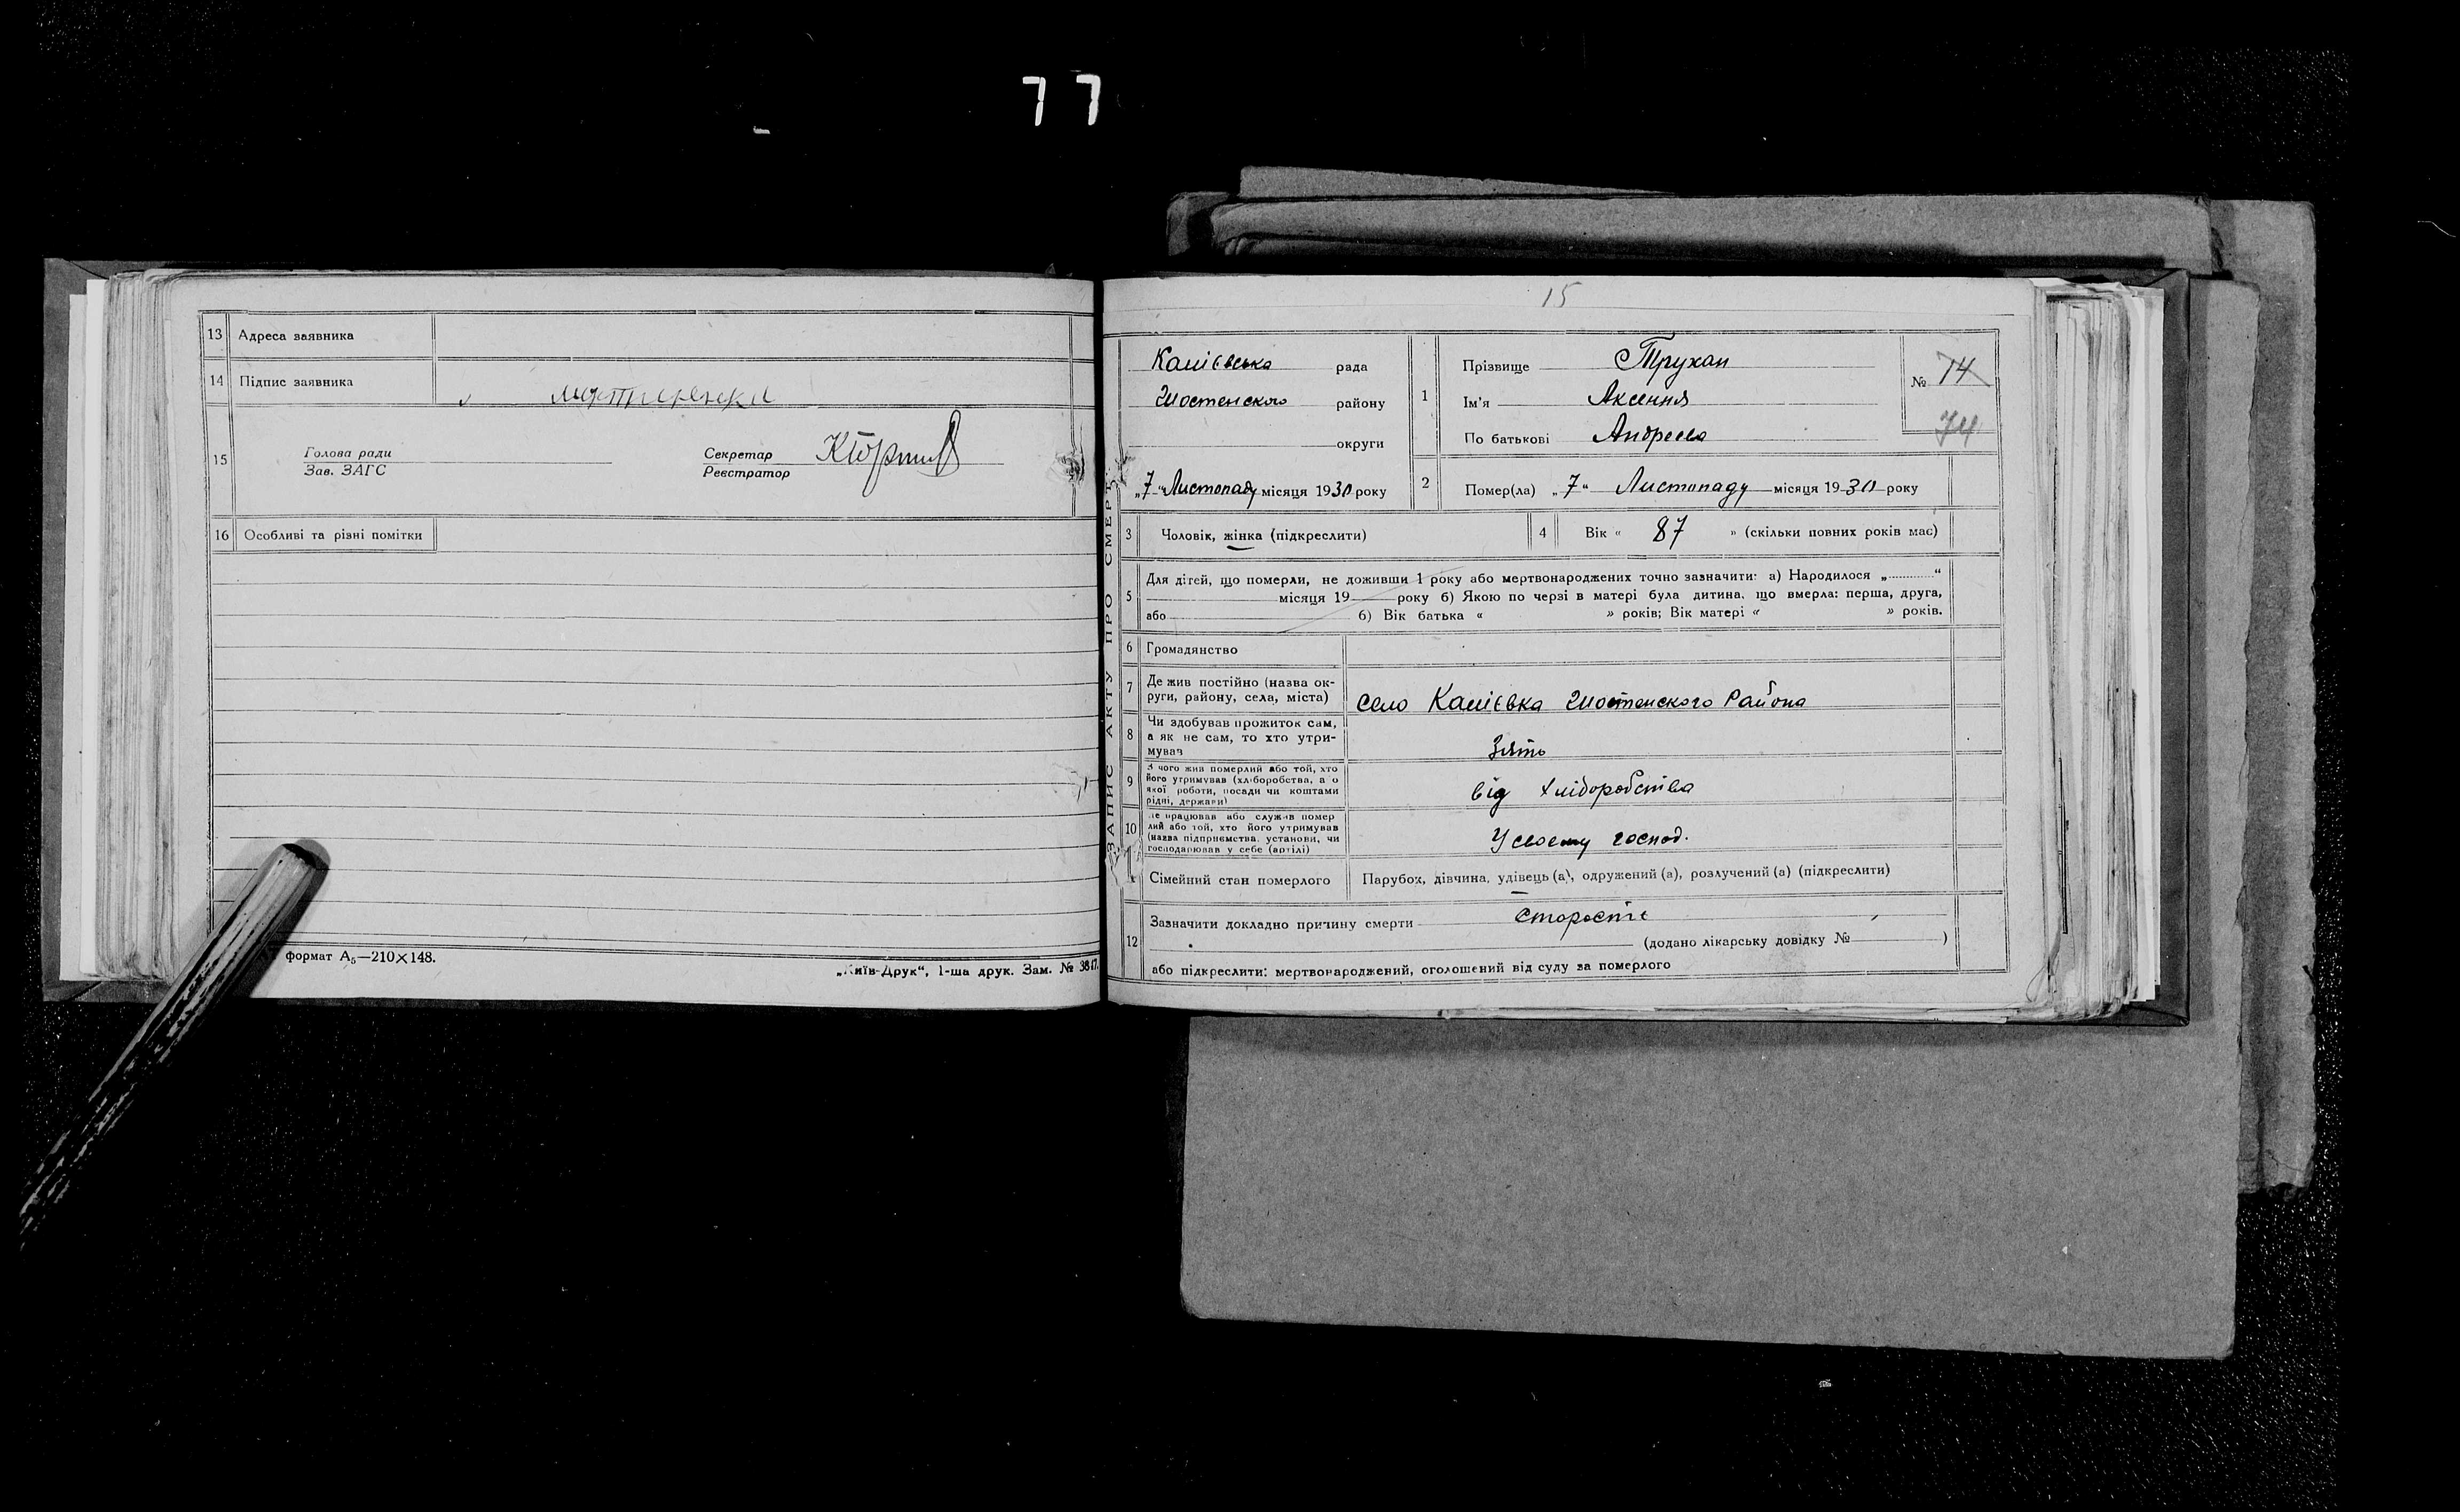 77
13 Адреса заявника
14 Підпис заявника
15 Голова ради
Зав. ЗАГС
Секретар
Реєстратор
16 Особливі та різні помітки
формат А₅—210×148.
„Київ-Друк“, 1-ша друк. Зам. № 3817.
15
ЗАПИС АКТУ ПРО СМЕРТЬ
рада
Шостенского району
округи
„7“ Листопаду місяця 1930 року
1 Прізвище Трухан
Ім'я Аксення
По батькові Андреева
№ 74
74
2 Помер(ла) „7“ Листопаду місяця 1930 року
3 Чоловік, жінка (підкреслити)
4 Вік « 87 » (скільки повних років має)
5 Для дітей, що померли, не доживши 1 року або мертвонароджених точно зазначити: а) Народилося „ “
місяця 19 року б) Якою по черзі в матері була дитина, що вмерла: перша, друга,
або б) Вік батька « » років; Вік матері « » років.
6 Громадянство
7 Де жив постійно (назва ок-
руги, району, села, міста)
село Шостенского Района
8 Чи здобував прожиток сам,
а як не сам, то хто утри-
мував
Зять
9 З чого жив померлий або той, хто
його утримував (хліборобства, а о
якої роботи, посади чи коштами
рідні, держави)
від хліборобства
10 Де працював або служив помер
лий або той, хто його утримував
(назва підприємства, установи, чи
господарював у себе (артілі)
У своему господ.
11 Сімейний стан померлого
Парубок, дівчина, удівець (а), одружений (а), розлучений (а) (підкреслити)
12 Зазначити докладно причину смерти старости
(додано лікарську довідку № )
або підкреслити: мертвонароджений, оголошений від суду за померлого